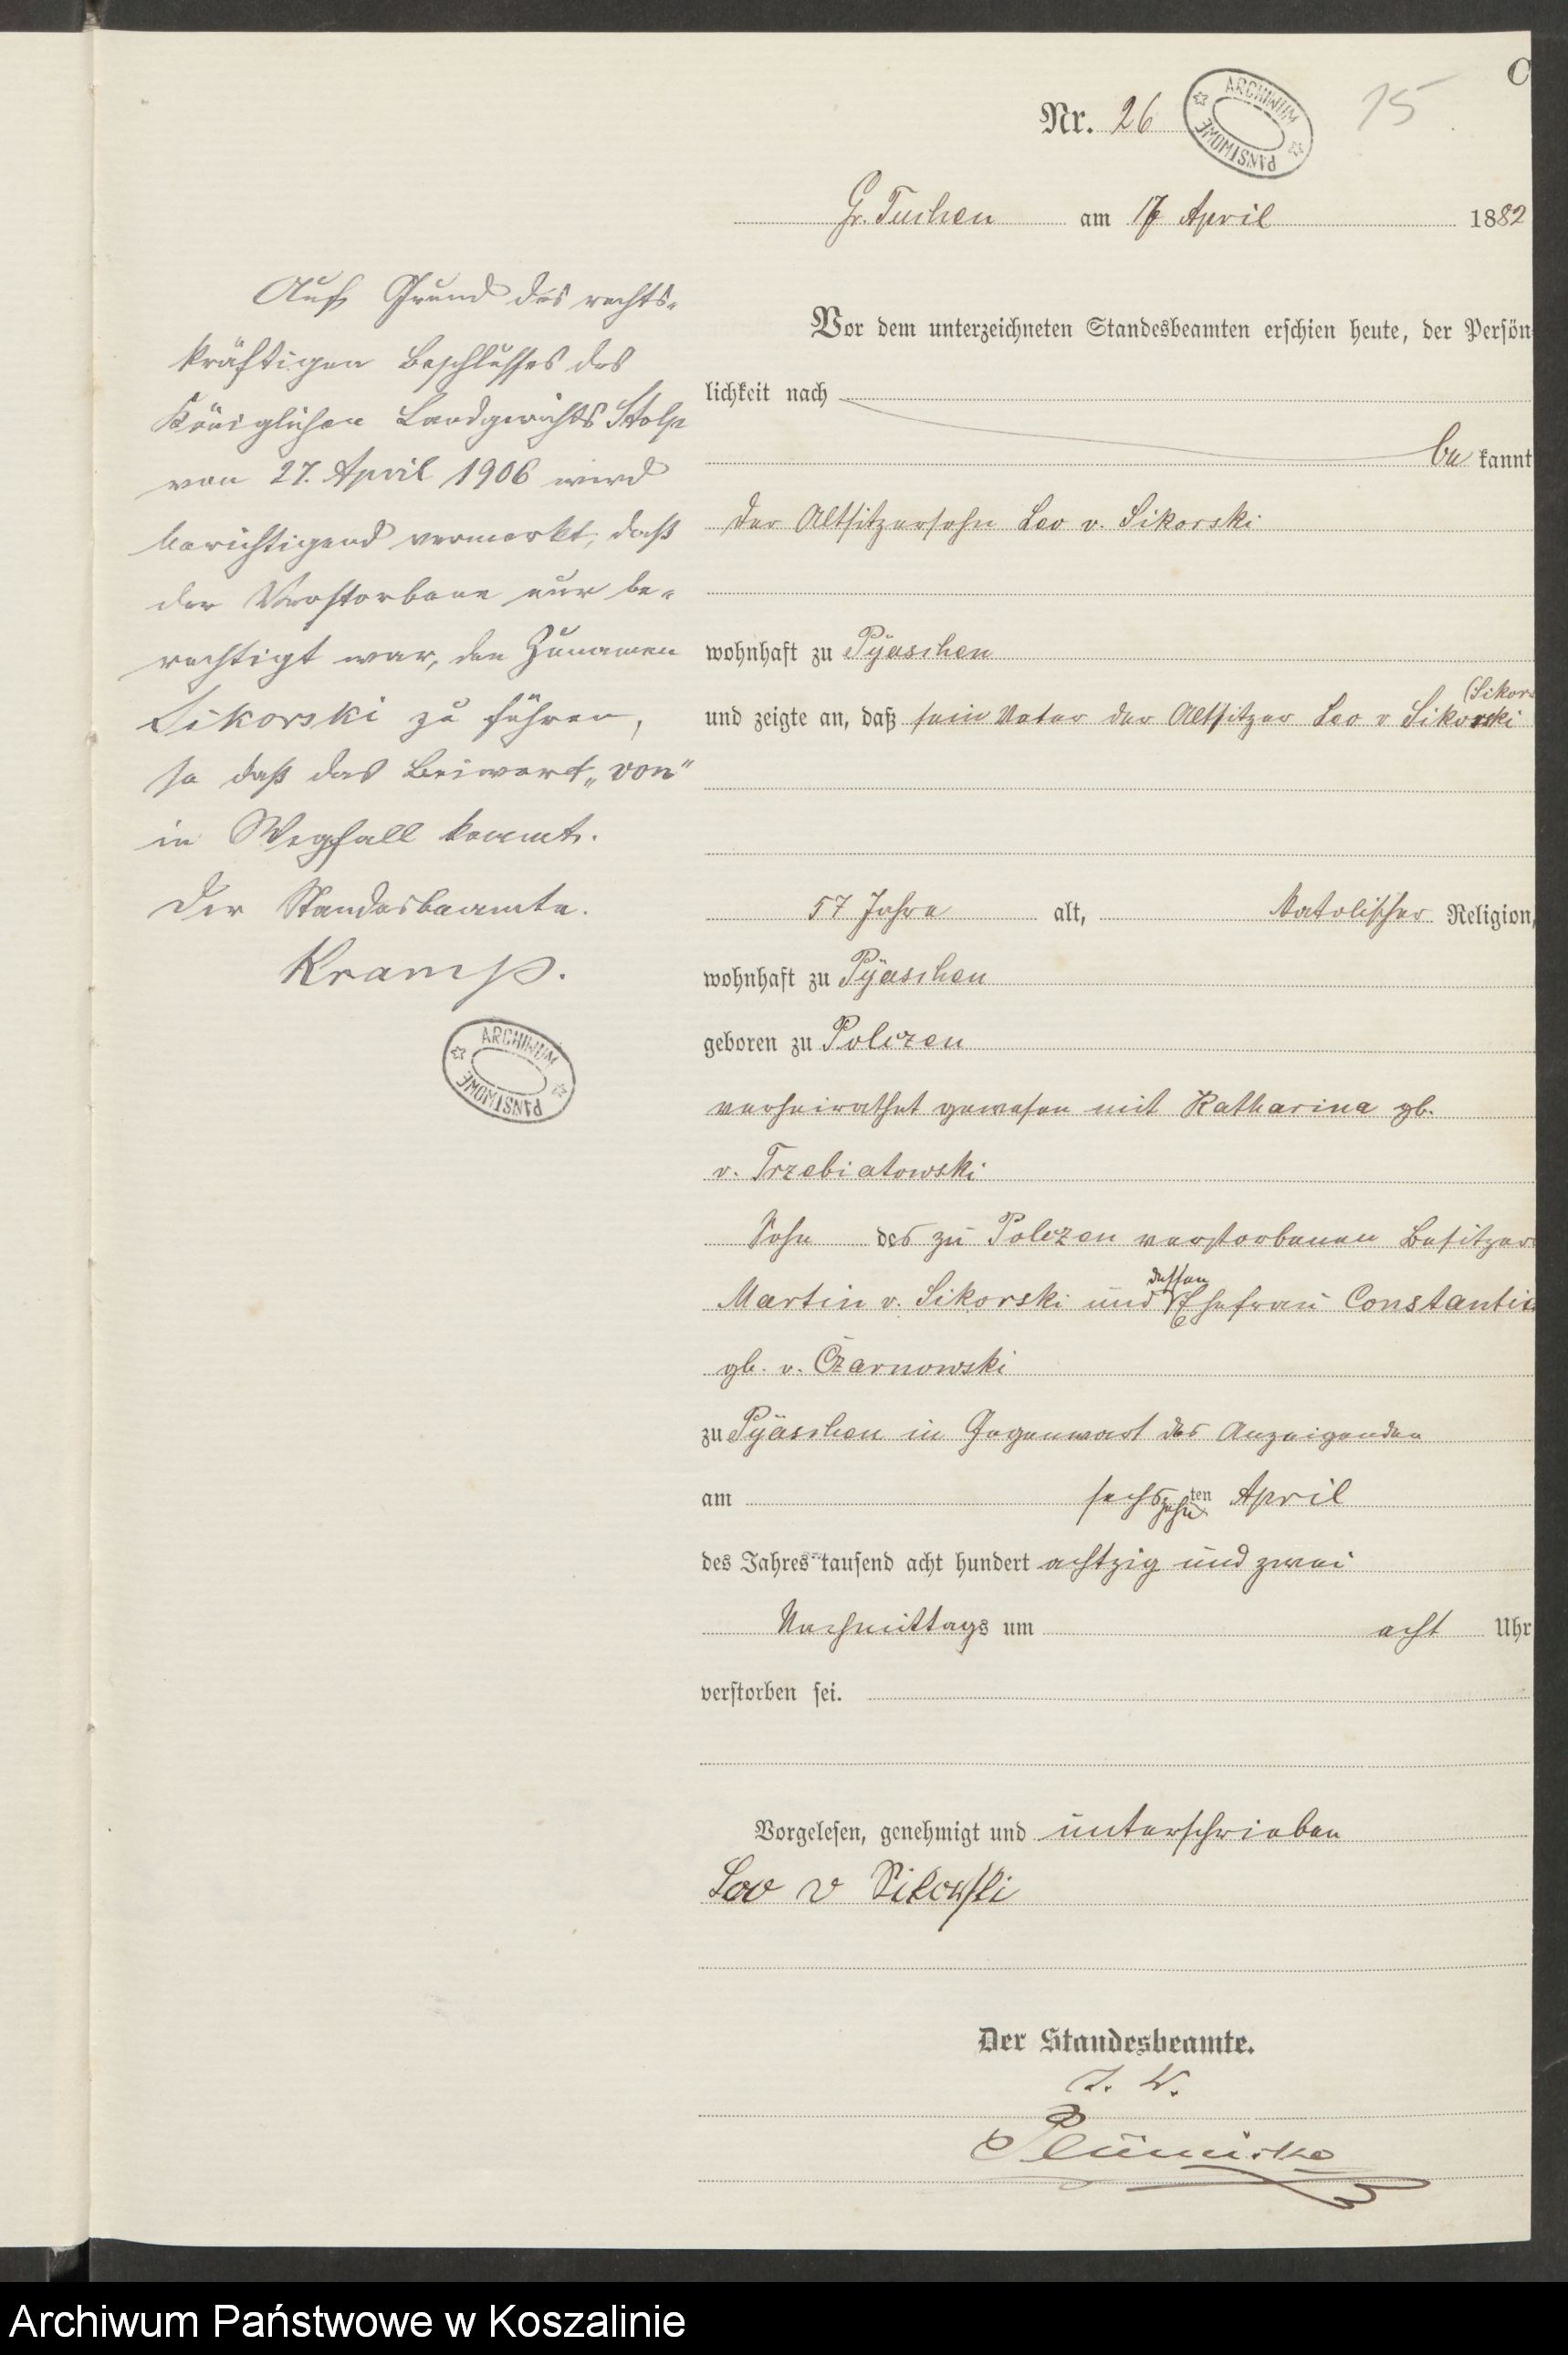 C
Nr. 26
ARCHIWUM PAŃSTWOWE
15
Gr. Tuchen am 17 April 1882
Vor dem unterzeichneten Standesbeamten erschien heute, der Persön
lichkeit nach
be kannt
der Altsitzersohn Leo v. Sikorski
wohnhaft zu Pyaschen
und zeigte an, daß sein Vater der Altsitzer Leo v Sikorski
57 Jahre alt, katolischer Religion,
wohnhaft zu Pyaschen
geboren zu Polczen
verheirathet gewesen mit Katharina gb.
v. Trzebiatowski
Sohn des zu Polczen verstorbenen Besitzers
Martin v. Sikorski und dessen Ehefrau
gb. v. Czarnowski
zu Pyaschen in Gegenwart des Anzeigenden
am sechszehnten April
des Jahres tausend acht hundert achtzig und zwei
Nachmittags um acht Uhr
verstorben sei.
Vorgelesen, genehmigt und unterschrieben
Leo v Sikorski
Der Standesbeamte.
Auf Grund des rechts-
kräftigen Beschlusses des
Königlichen Landgerichts Stolp
von 27. April 1906 wird
berichtigend vermerkt, daß
der Verstorbene nur be-
rechtigt war, den Zunamen
Sikorski zu führen,
so daß das Beiwort „von"
in Wegfall kommt.
Der Standesbeamte.
Kramp.
ARCHIWUM PAŃSTWOWE
Archiwum Państwowe w Koszalinie